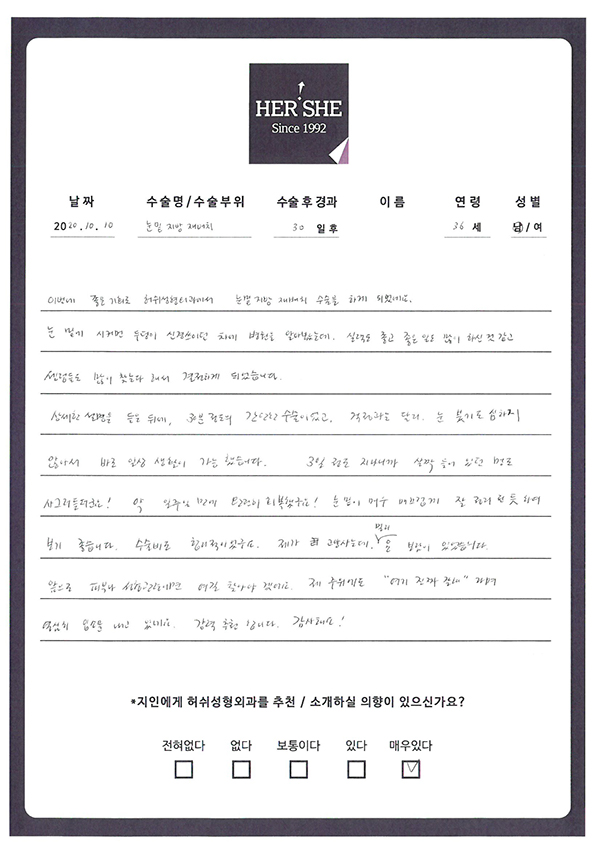 HER SHE
Since 1992
날 짜 수술명 / 수술부위 수술 후 경과 이 름 연 령 성 별
2020.10.10 눈밑 지방 재배치 30 일 후 36 세 남 / 여
이번에 좋은 기회로 허쉬성형외과에서 눈밑지방 재배치 수술을 하게 되었어요.
눈 밑에 시커먼 투성이 신경쓰이던 차에 병원을 알아봤는데. 실력도 좋고 좋은 일도 많이 하신 것 같고
많이 찾는다 해서 결정하게 되었습니다.
상세한 설명을 듣은 뒤에, 30분 정도의 간단한 수술이었고, 달리. 눈 붓기도 심하지
않아서 바로 일상 생활이 가능했습니다. 3일 정도 지나니까 살짝 들어 있던 멍도
사그러들더군요! 약 일주일 만에 완전히 회복했구요! 눈 밑이 매우 매끄럽게 잘 정리 된 듯 하여
보기 좋습니다. 수술비도 합리적이었구요. 제가 사는데, 멀리 온 보람이 있었습니다.
앞으로 피부나 성형관련이면 여길 찾아야 겠어요. 제 주위에도 "여기 진짜 잘해" 라며
열심히 입소문 내고 있네요. 강력 추천 합니다. 감사해요!
*지인에게 허쉬성형외과를 추천 / 소개하실 의향이 있으신가요?
전혀없다 없다 보통이다 있다 매우있다